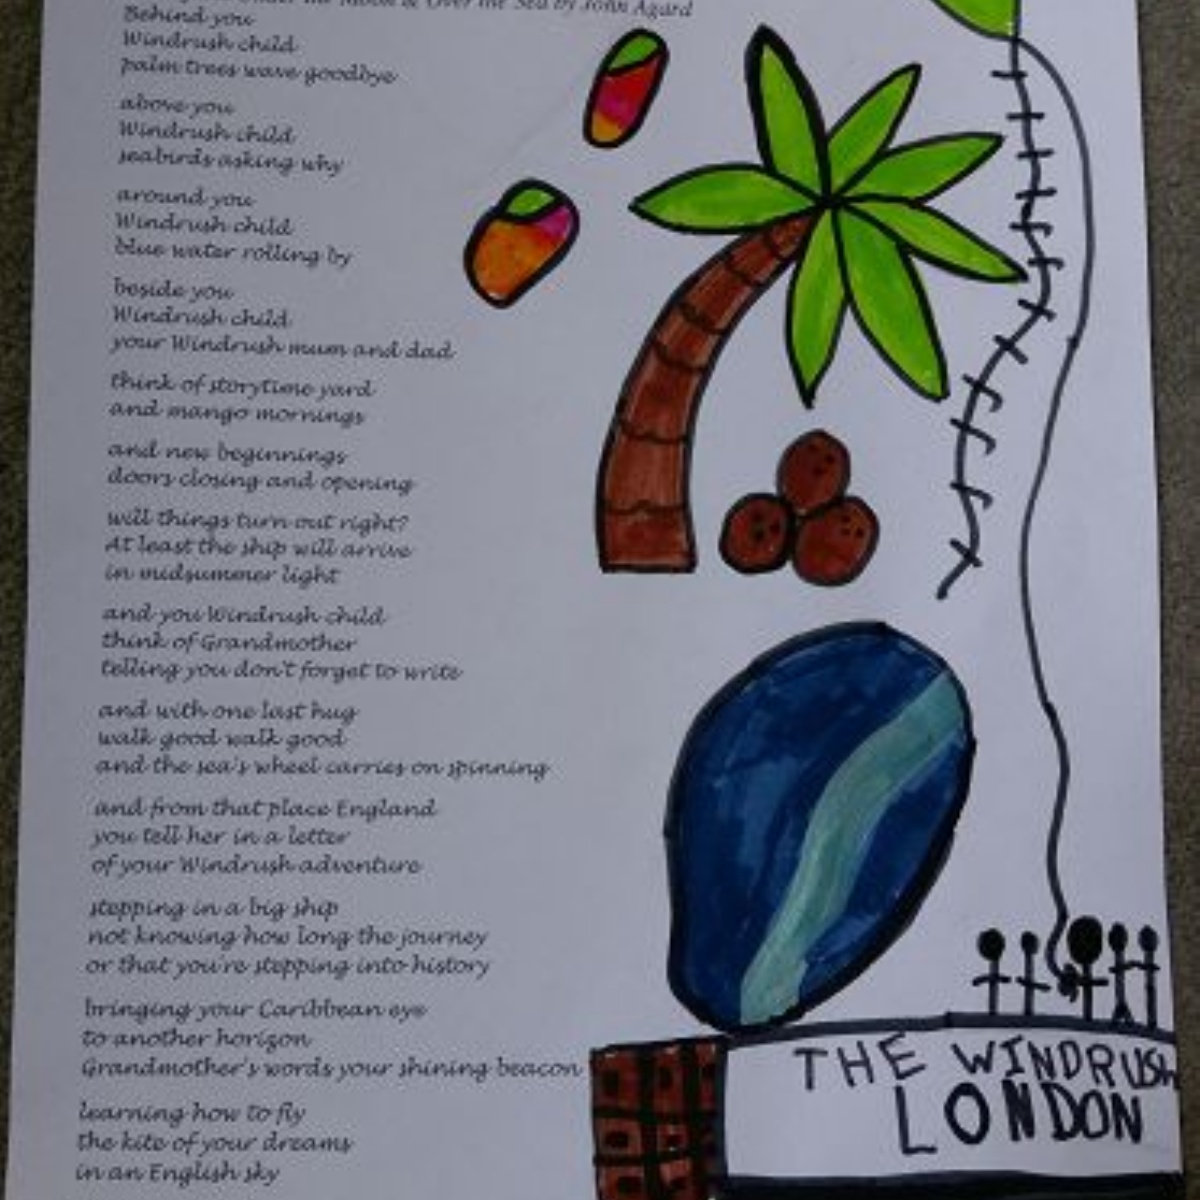 Under the Moon & Over the Sea by John Agard
Behind you
Windrush child
palm trees wave goodbye
above you
Windrush child
seabirds asking why
around you
Windrush child
blue water rolling by
beside you
Windrush child
your Windrush mum and dad
think of storytime yard
and mango mornings
and new beginnings
doors closing and opening
will things turn out right?
At least the ship will arrive
in midsummer light
and you Windrush child
think of Grandmother
telling you don't forget to write
and with one last hug
walk good walk good
and the sea's wheel carries on spinning
and from that place England
you tell her in a letter
of your Windrush adventure
stepping in a big ship
not knowing how long the journey
or that you're stepping into history
bringing your Caribbean eye
to another horizon
Grandmother's words your shining beacon
learning how to fly
the kite of your dreams
in an English sky
THE WINDRUSH
LONDON